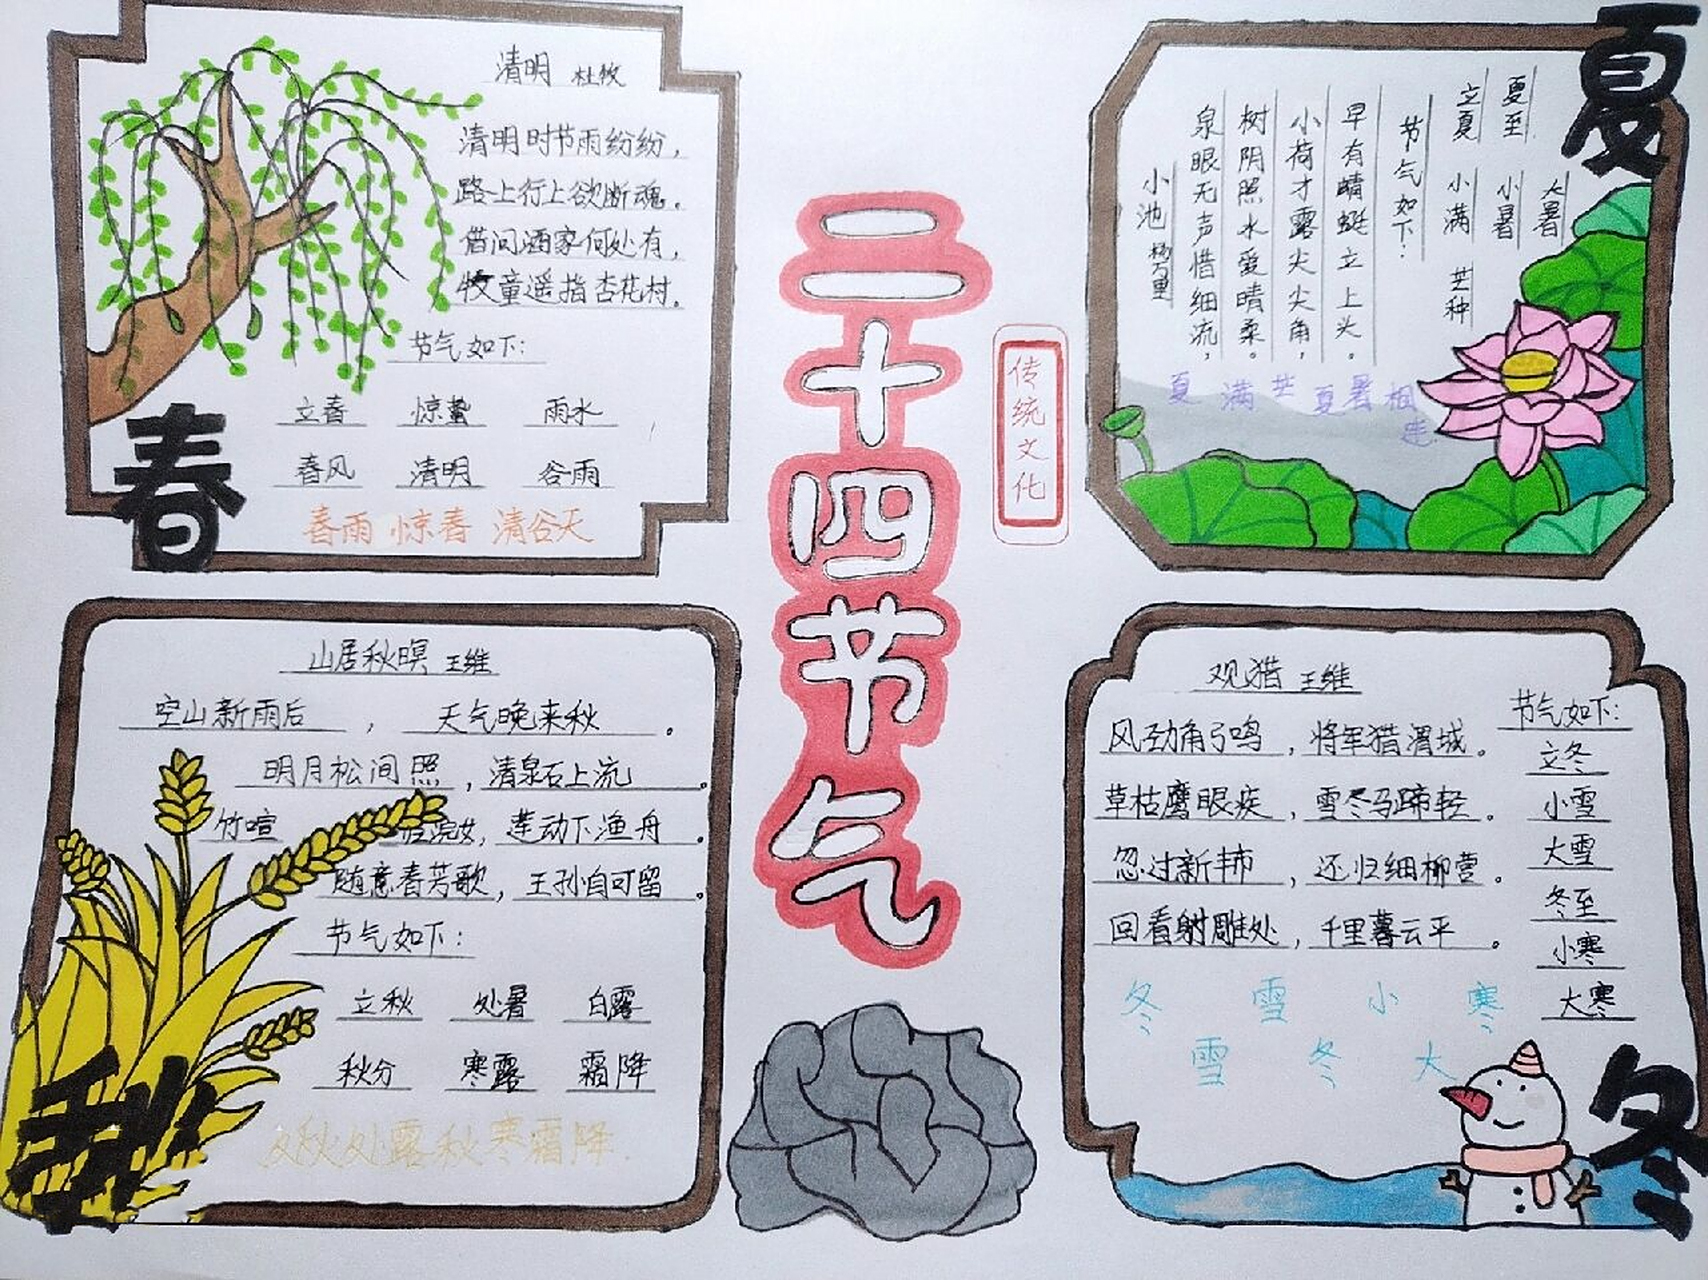 清明 杜牧
清明时节雨纷纷，
路上行上欲断魂。
借问酒家何处有，
牧童遥指杏花村。
节气如下:
立春 惊蛰 雨水
春风 清明 谷雨
春雨 惊春 清谷天
春
二十四节气
传统文化
夏
夏至
立夏
大暑
小暑
小满
芒种
节气如下:
早有蜻蜓立上头。
小荷才露尖尖角，
树阴照水爱晴柔。
泉眼无声惜细流，
小池 杨万里
夏 满 芒 夏 暑 相
连
山居秋暝 王维
空山新雨后 ， 天气晚来秋 。
明月松间照 ，清泉石上流 。
竹喧 浣女，莲动下渔舟 。
随意春芳歌，王孙自可留 。
节气如下:
立秋 处暑 白露
秋分 寒露 霜降
秋处露秋寒霜降
秋
观猎 王维
风劲角弓鸣 ，将军猎渭城 。
草枯鹰眼疾 ，雪尽马蹄轻 。
忽过新丰市 ，还归细柳营 。
回看射雕处，千里暮云平 。
节气如下:
立冬
小雪
大雪
冬至
小寒
大寒
冬 雪 小 寒
雪 冬 大
冬